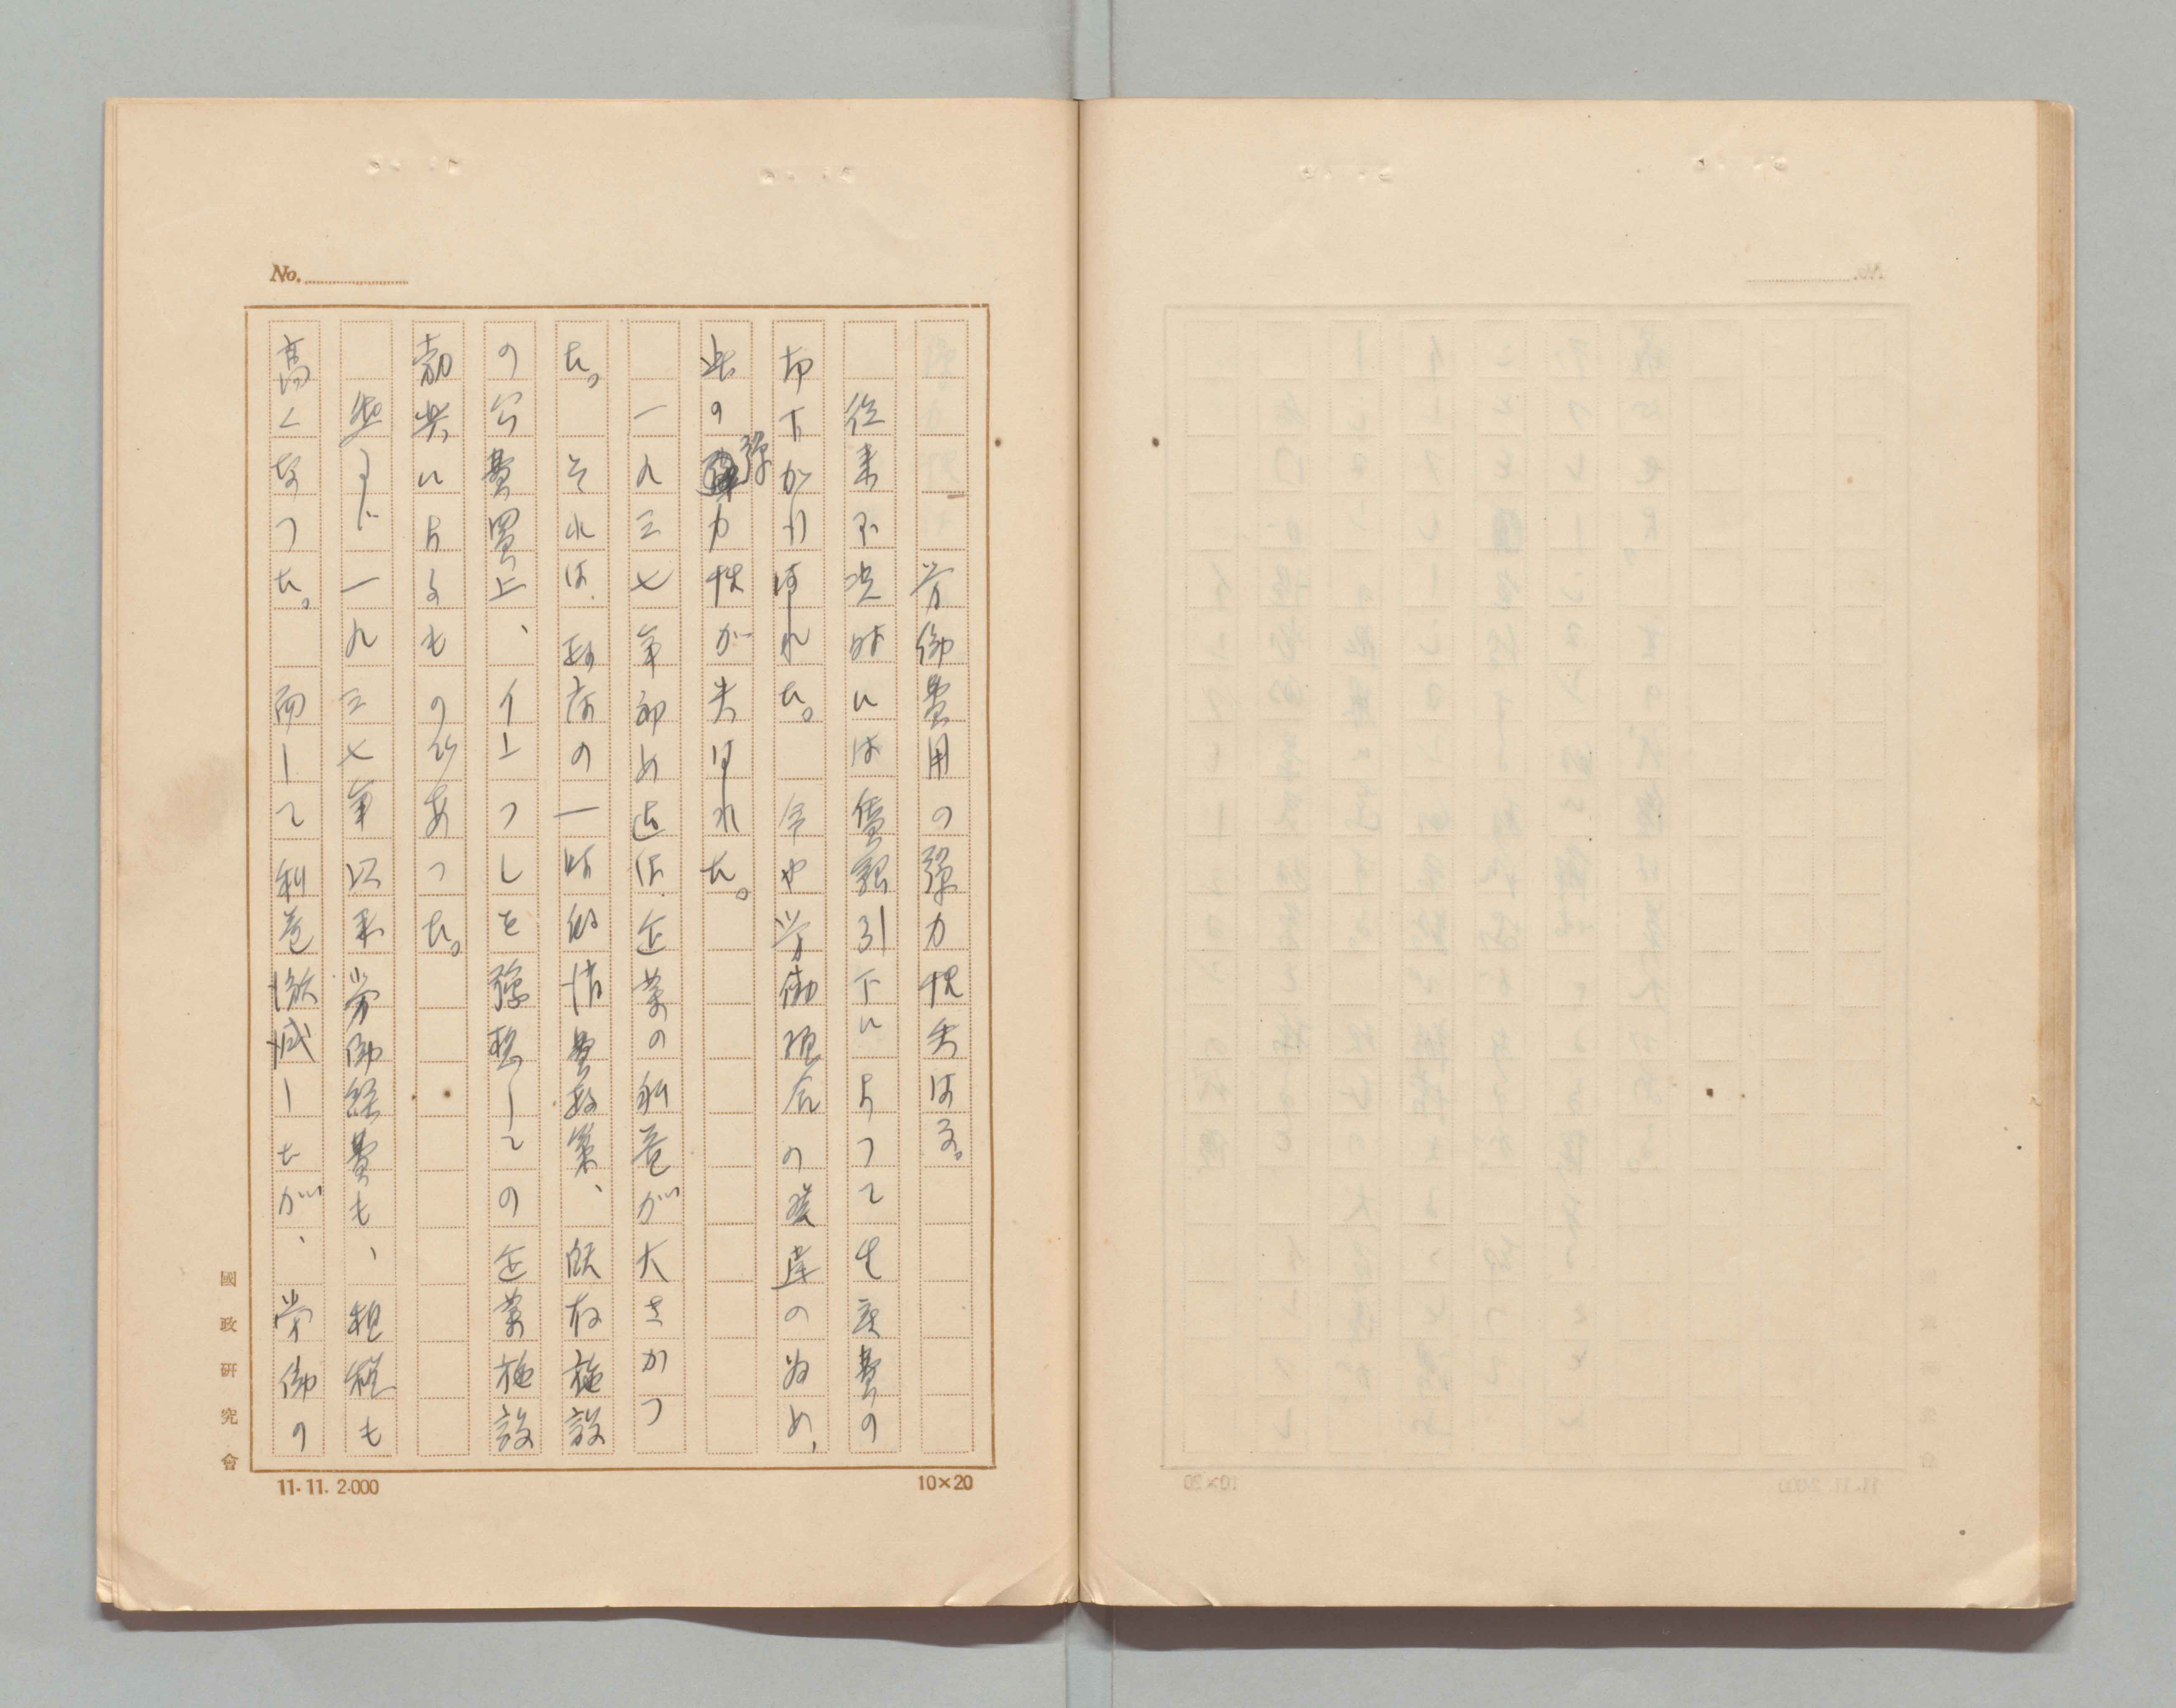 No.
労働費用の弾力性失はる。
従来不況時には賃銀引下によつて生産費の
切下が行はれた。 今や労働組合の発達のため、
此の弾力性が失はれた。
一九三七年初め迄は、企業の利益が大きかつ
た。 それは、政府の一時的消費政策、既存施設
の公費買上、インフレを予想しての企業施設
勃興によるものであつた。
然るに一九三七年以来労働経費も、租税も
高くなつた。 而して利益激減したが、労働の
國政研究會
11.11. 2.000
10×20